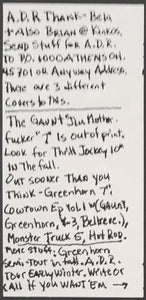 A.D.R Thank= Bela
+ Also Brian @ Kinkos,
Send Stuff for A.D.R.
To P.O. 1000 Athens OH.
45701 or Any way Address.
There are 3 different
Covers to this.
The Gaunt "Jim Mother-
fucker" 7" is out of print.
Look for Thrill Jockey 10"
In The fall.
Out sooner Than you
Think - Greenhorn 7"
Cowtown Ep Vol 1 w/(Gaunt,
Greenhorn, &-3, Belreve.),
Monster Truck 5, Hot Rod.
More stuff. Greenhorn
Semi-Tour in fall. A.D.R.
Tour Early Winter. Write or
Call If you want 'em →